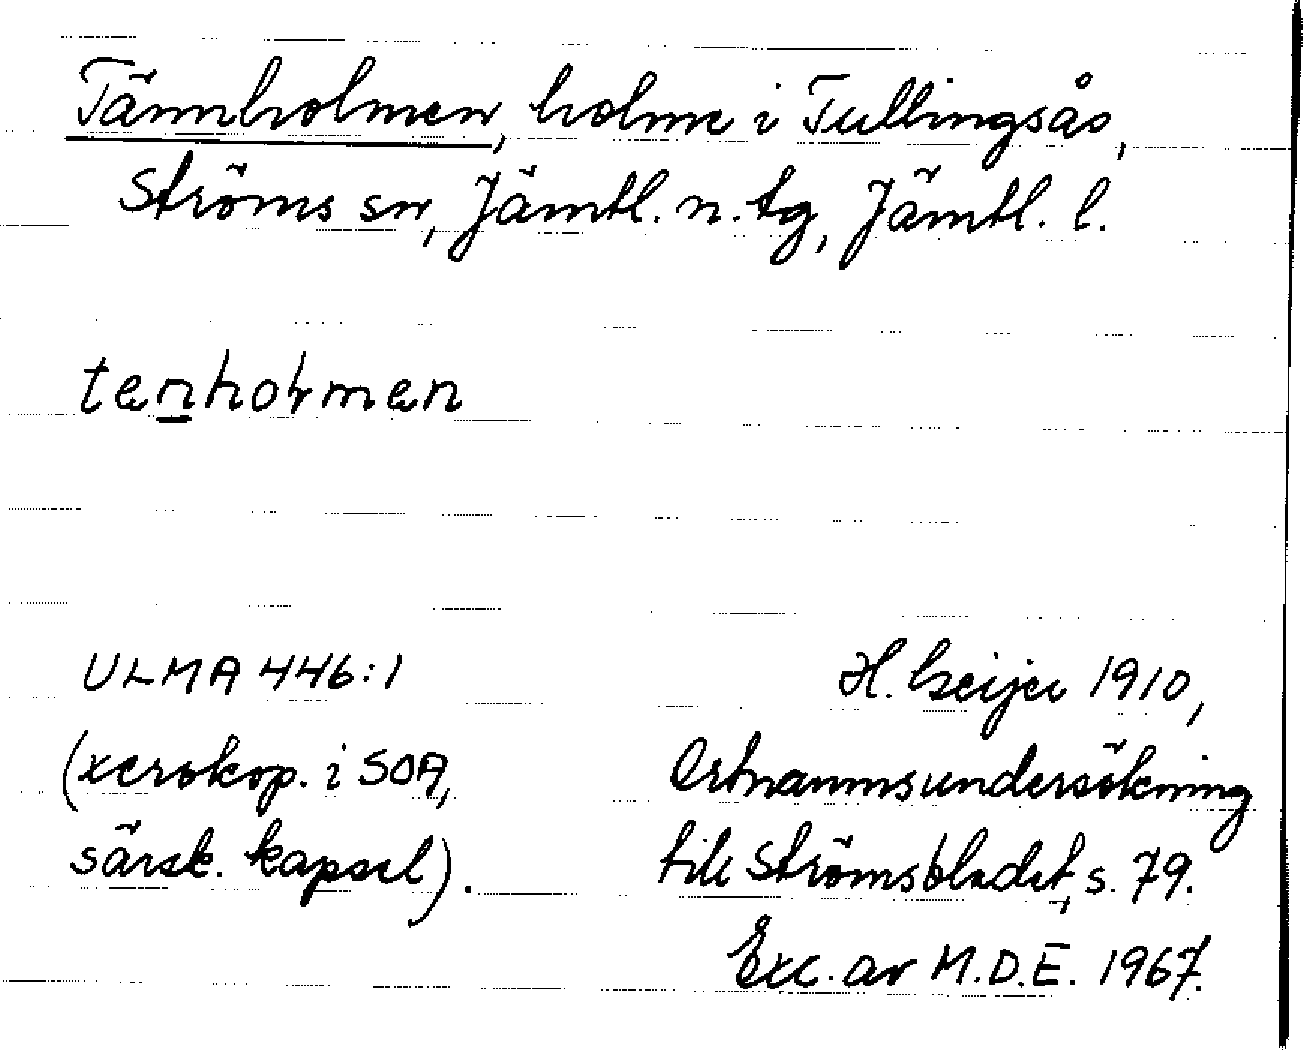 Tännholmen, holme i Tullingsås,
Ströms sn, Jämtl. n. tg, Jämtl. l.
tenholmen
ULMA 446:1
(xerokop. i SOA,
särsk. kapsel).
H. Geijer 1910,
Ortnamnsundersökning
till Strömsbladet, s. 79.
Exc. av M.D.E. 1967.